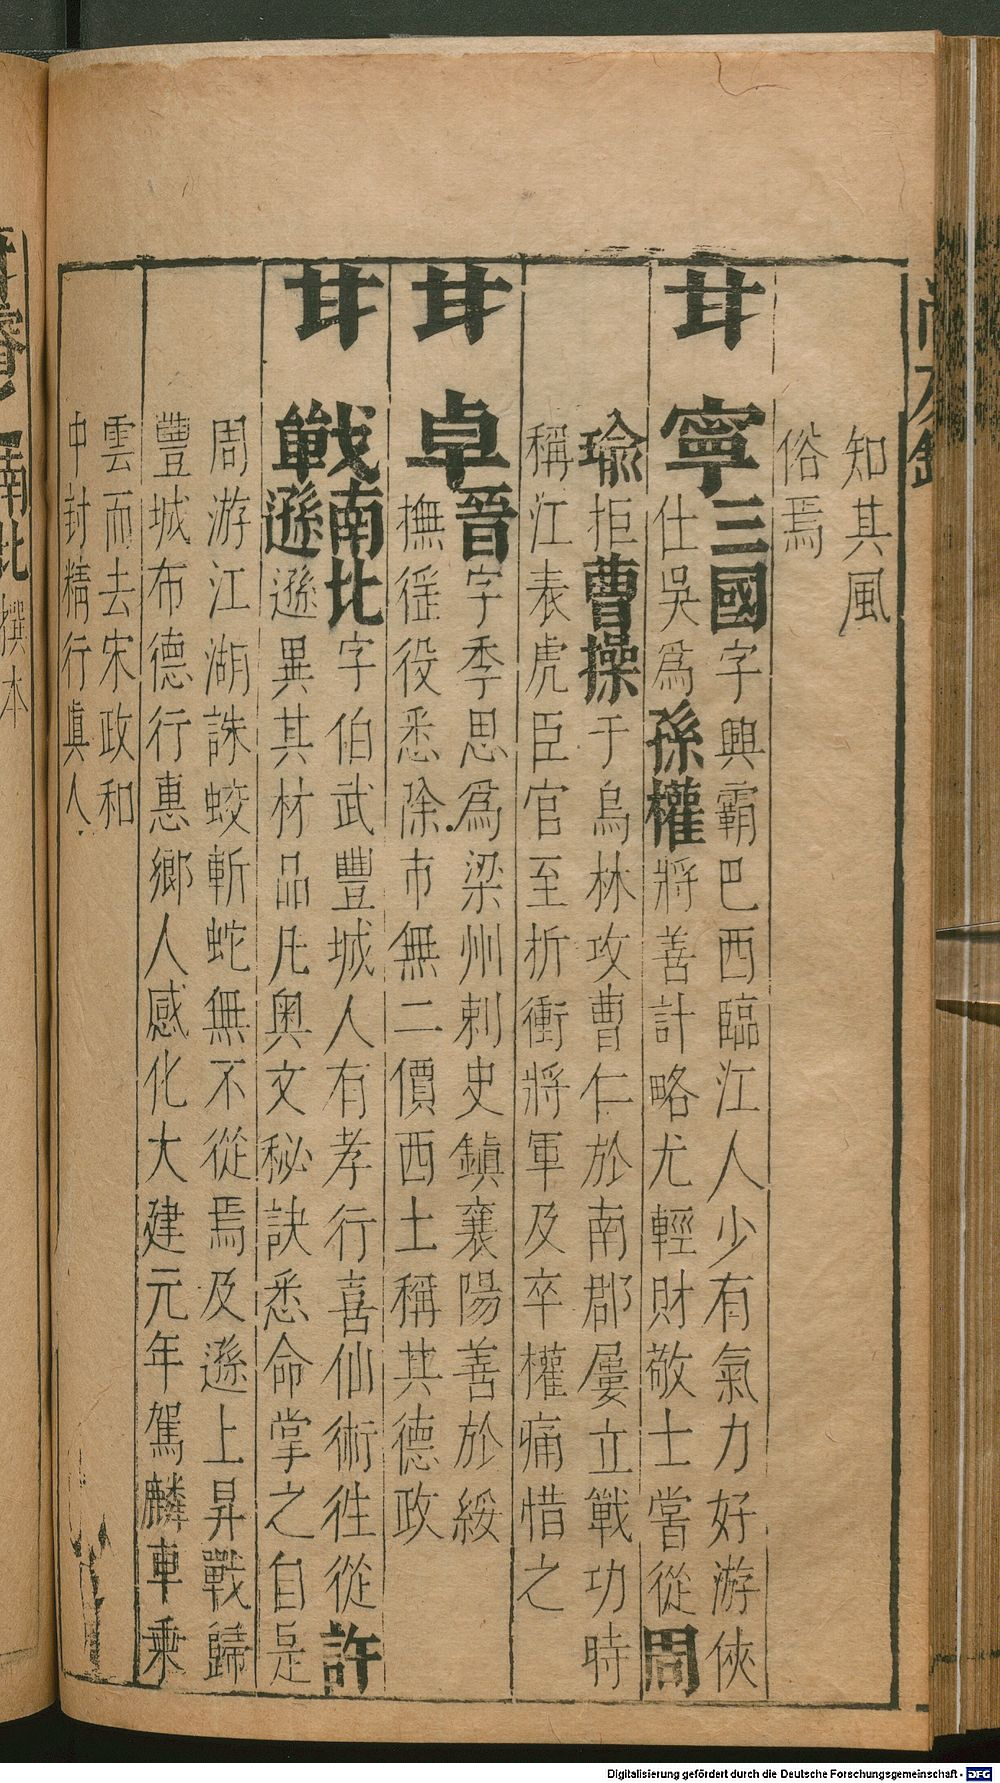 知其風
俗焉
甘寧三國字興霸巴西臨江人少有氣力好游俠
仕吳爲孫權將善計略尤輕財敬士嘗從周
瑜拒曹操于烏林攻曹仁於南郡屢立戰功時
稱江表虎臣官至折衝將軍及卒權痛惜之
甘卓晉字季思爲梁州剌史鎮襄陽善於綏
撫徭役悉除市無二價西土稱其德政
甘戰南北字伯武豐城人有孝行喜仙術徃從許
遜遜異其材品凡奧文秘訣悉命掌之自是
周游江湖誅蛟斬蛇無不從焉及遜上昇戰歸
豐城布德行惠鄉人感化大建元年駕麟車乘
雲而去宋政和
中封精行眞人
南北撰本
Digitalisierung gefördert durch die Deutsche Forschungsgemeinschaft - DFG